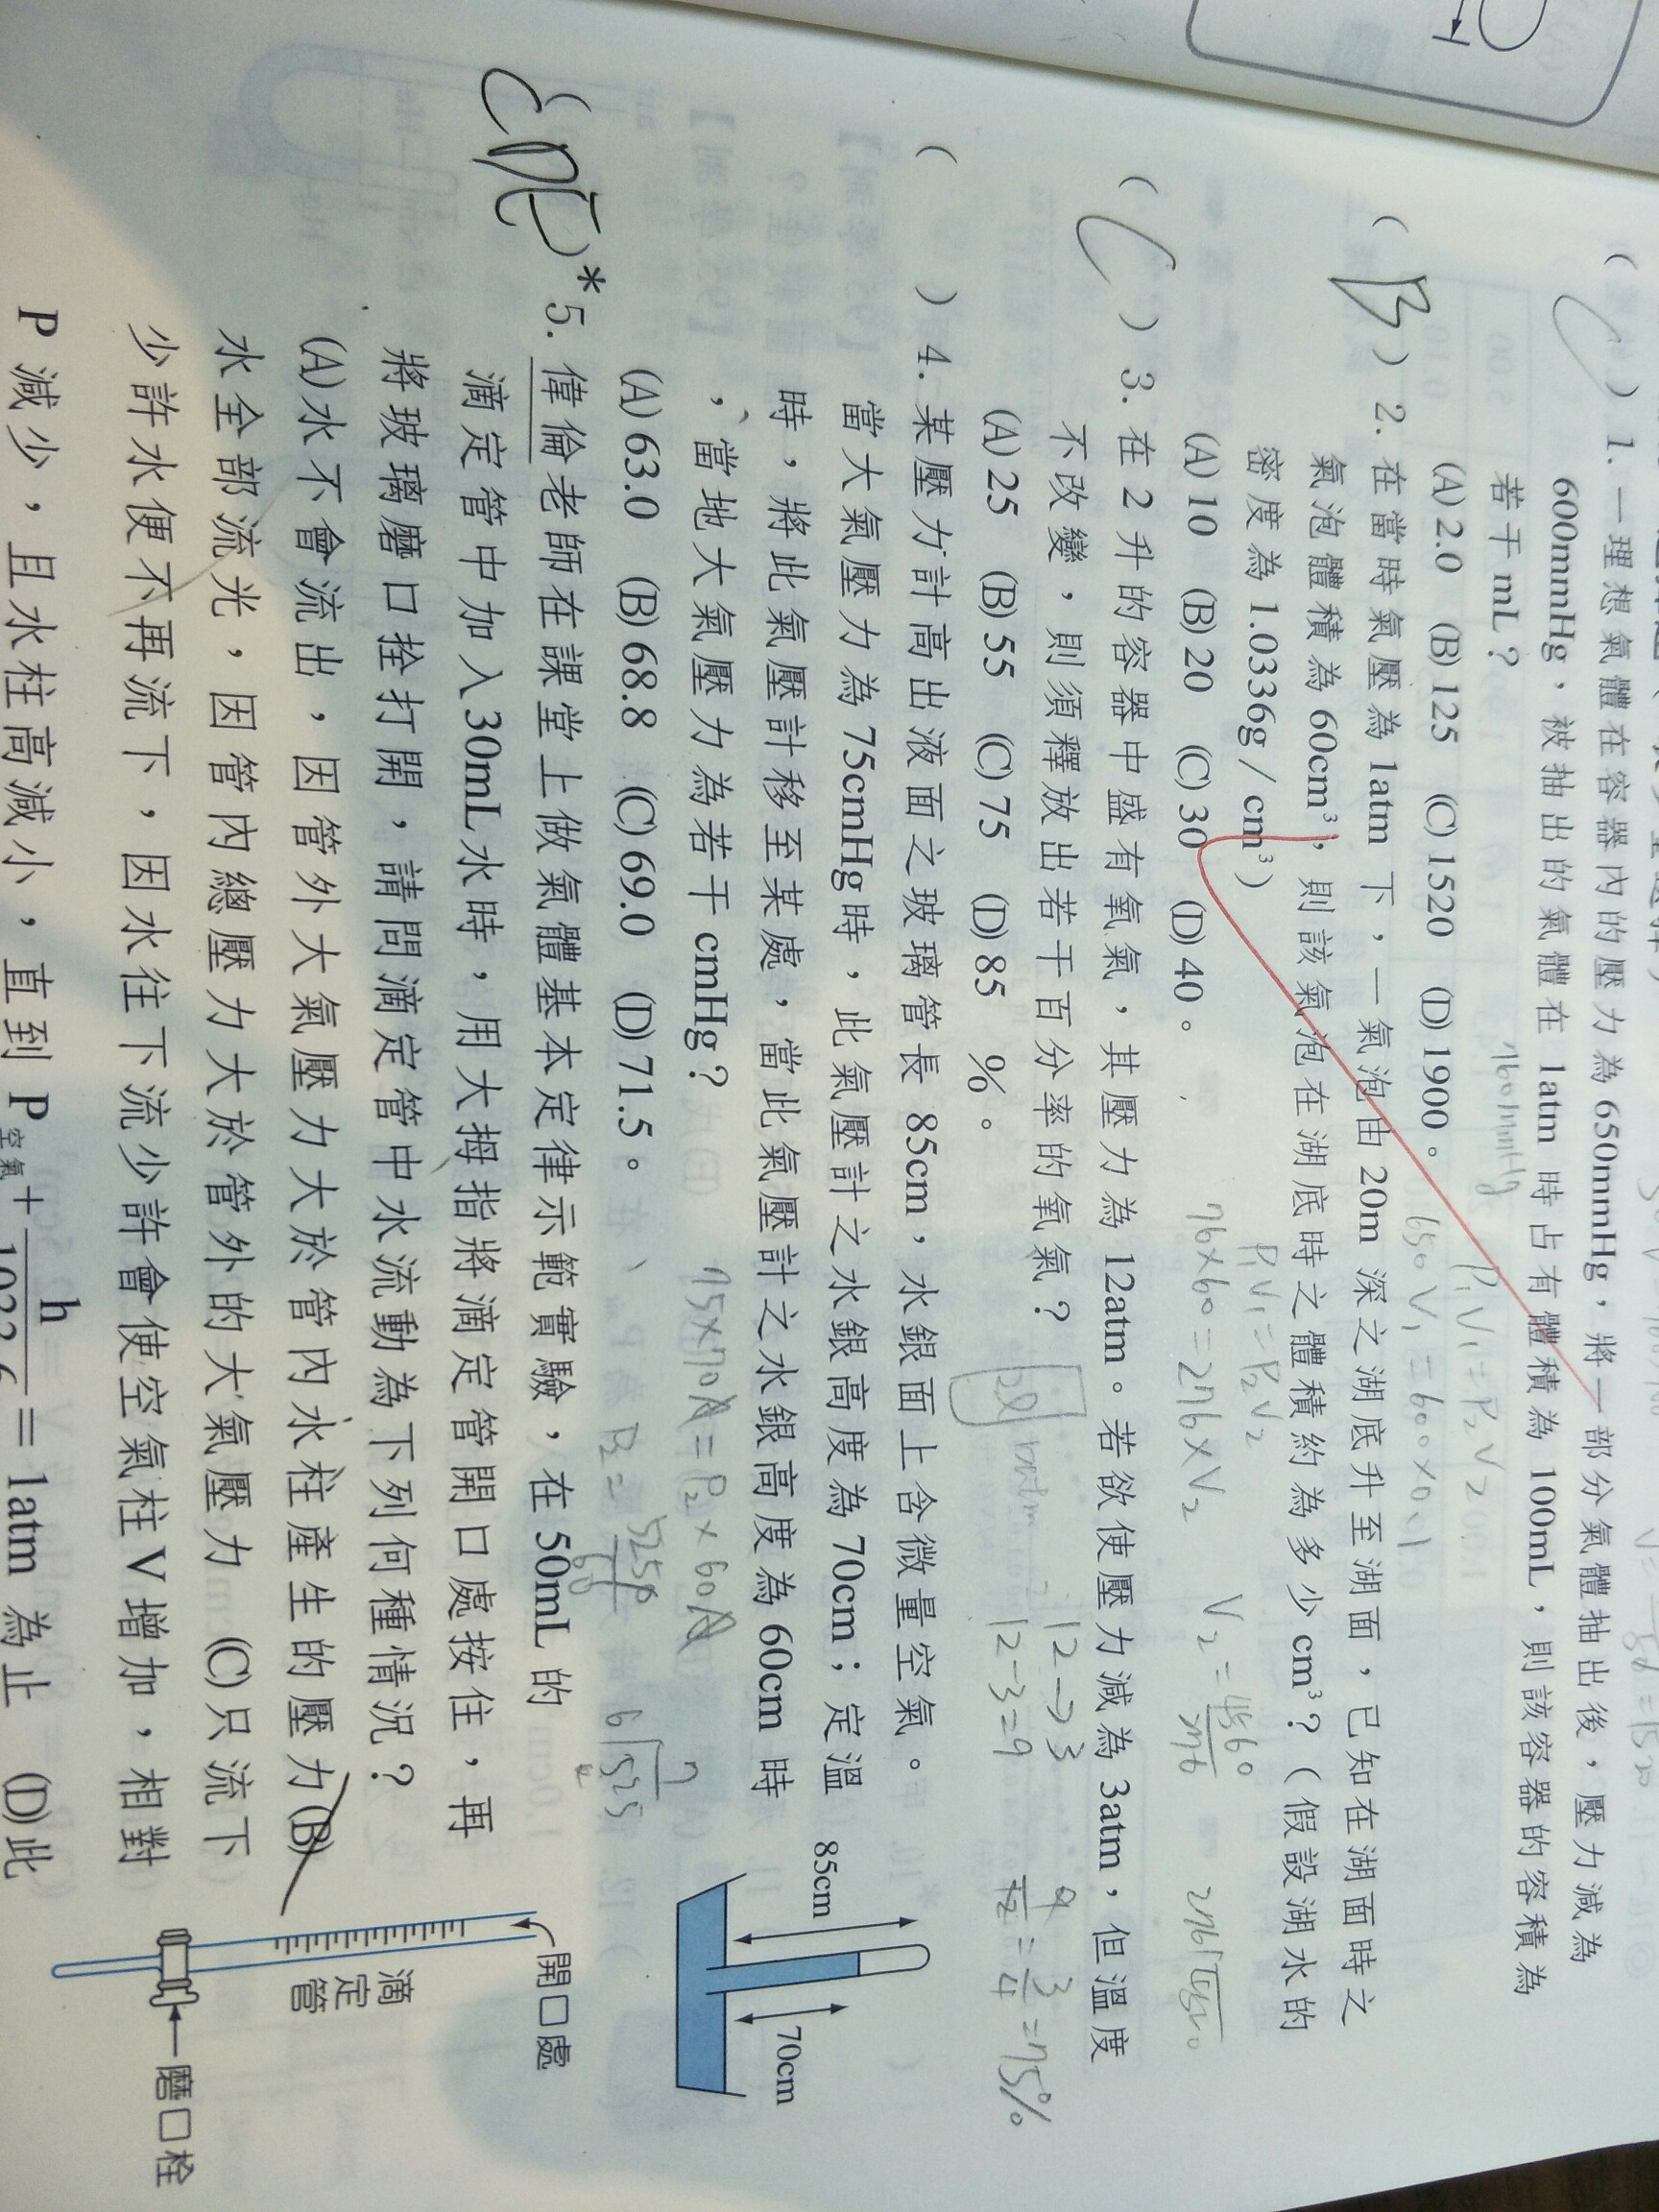 ( C ) 1. 一理想氣體在容器內的壓力為 650mmHg，將一部分氣體抽出後，壓力減為
600mmHg，被抽出的氣體在 1atm 時占有體積為 100mL，則該容器的容積為
若干 mL？
760mmHg
P₁V₁=P₂V₂
(A) 2.0 (B) 125 (C) 1520 (D) 1900。
650V₁=600×0.1
( B ) 2. 在當時氣壓為 1atm 下，一氣泡由 20m 深之湖底升至湖面，已知在湖面時之
氣泡體積為 60cm³，則該氣泡在湖底時之體積約為多少 cm³？（假設湖水的
密度為 1.0336g / cm³）
P₁V₁=P₂V₂
(A) 10 (B) 20 (C) 30 (D) 40。
76×60=276×V₂
V₂=4560/276
( C ) 3. 在 2 升的容器中盛有氧氣，其壓力為 12atm。若欲使壓力減為 3atm，但溫度
不改變，則須釋放出若干百分率的氧氣？
(A) 25 (B) 55 (C) 75 (D) 85 %。
2l
12→3
12-3=9
9/12=3/4=75%
( ) 4. 某壓力計高出液面之玻璃管長 85cm，水銀面上含微量空氣。
當大氣壓力為 75cmHg 時，此氣壓計之水銀高度為 70cm；定溫
時，將此氣壓計移至某處，當此氣壓計之水銀高度為 60cm 時
，當地大氣壓力為若干 cmHg？
75×70A=P₂×60A
(A) 63.0 (B) 68.8 (C) 69.0 (D) 71.5。
P₂=5250/60
85cm
70cm
( )*5. 偉倫老師在課堂上做氣體基本定律示範實驗，在 50mL 的
滴定管中加入 30mL 水時，用大拇指將滴定管開口處按住，再
將玻璃磨口拴打開，請問滴定管中水流動為下列何種情況？
(A)水不會流出，因管外大氣壓力大於管內水柱產生的壓力 (B)
水全部流光，因管內總壓力大於管外的大氣壓力 (C)只流下
少許水便不再流下，因水往下流少許會使空氣柱 V 增加，相對
P 減少，且水柱高減小，直到 P空氣+ h = 1atm 為止 (D)此
開口處
滴定管
磨口栓